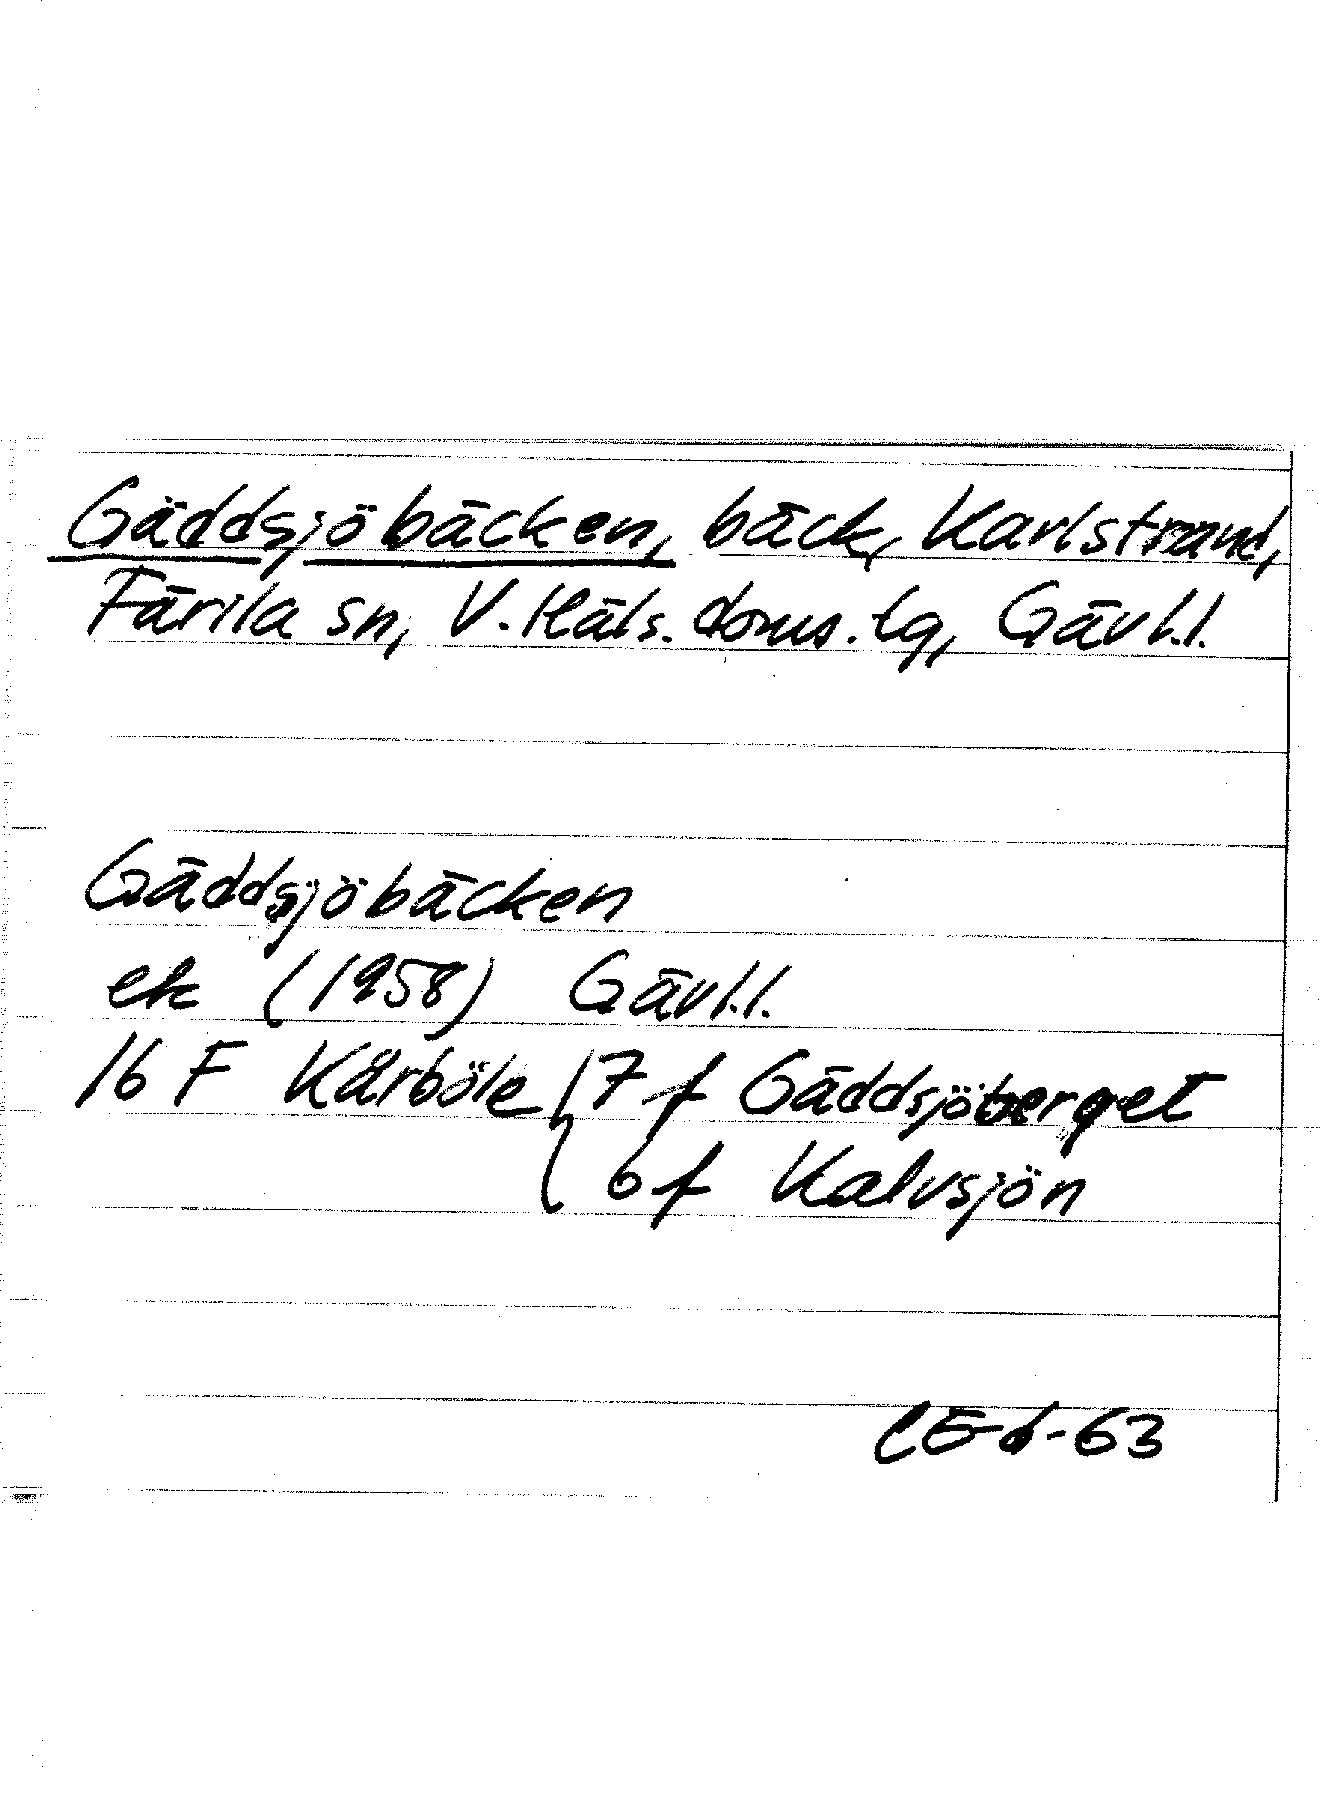 Gäddsjöbäcken, bäck, Karlstrand,
Färila sn, V. Häls. doms. lg, Gävl.l.
Gäddsjöbäcken
ek (1958) Gävl.l.
16 F Kårböle { 7 f Gäddsjöberget
6 f Kalvsjön
CE-6-63